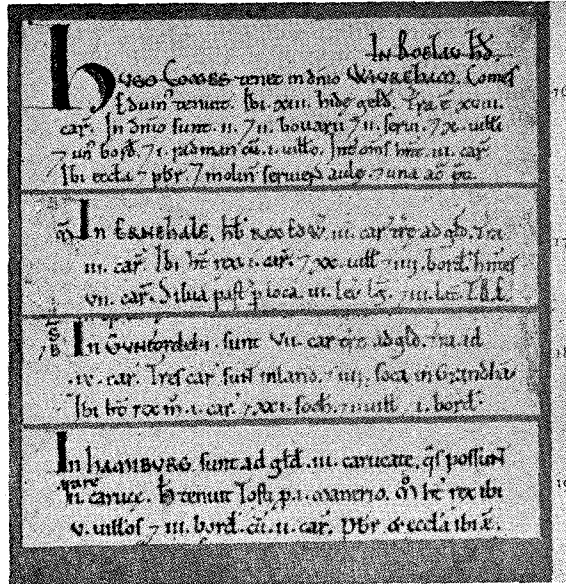 IN BOELAU HD.
HUGO COMES tenet in dnio WIUREHAM. Comes
Eduin' tenuit. Ibi xiii hidę geld. Tra ē xviii.
car̃. In dnio sunt .ii. 7 ii. bouarii 7 ii. serui. 7 x. uilli
7 un' bord. 7 i. radman cū .i. uillo. Int oms hnt .iii. car̃
Ibi eccła 7 pbr. 7 molin seruiens aulę. 7 una ac̃
M̃ In ERNEHALE. hb rex Edw̃ iii. car̃ træ ad gld. Tra
iii. car̃. Ibi ht rex i. car̃. 7 xx. uill 7 iiij. bord. hntes
vii. car̃. Silua past p loca. iii. leu lg̃. 7 iii. lat̃.
7 B In sunt Vii. car træ ad gld. tra ad
.ix. car̃. Tres car̃ sunt inland. 7 iiij. soca in Grandhā
Ibi ht rex m̊ .i. car̃. 7 xxi. soch. uill i. bord.
In HAMBURG sunt ad gld .iii. carucatę. q̃s possunt
arare
ii. carucę. H̃ tenuit Tosti p .i. manerio. M̊ ht rex ibi
v. uillos 7 iii. bord. cū .ii. car̃. Pbr & eccła ibi ē.